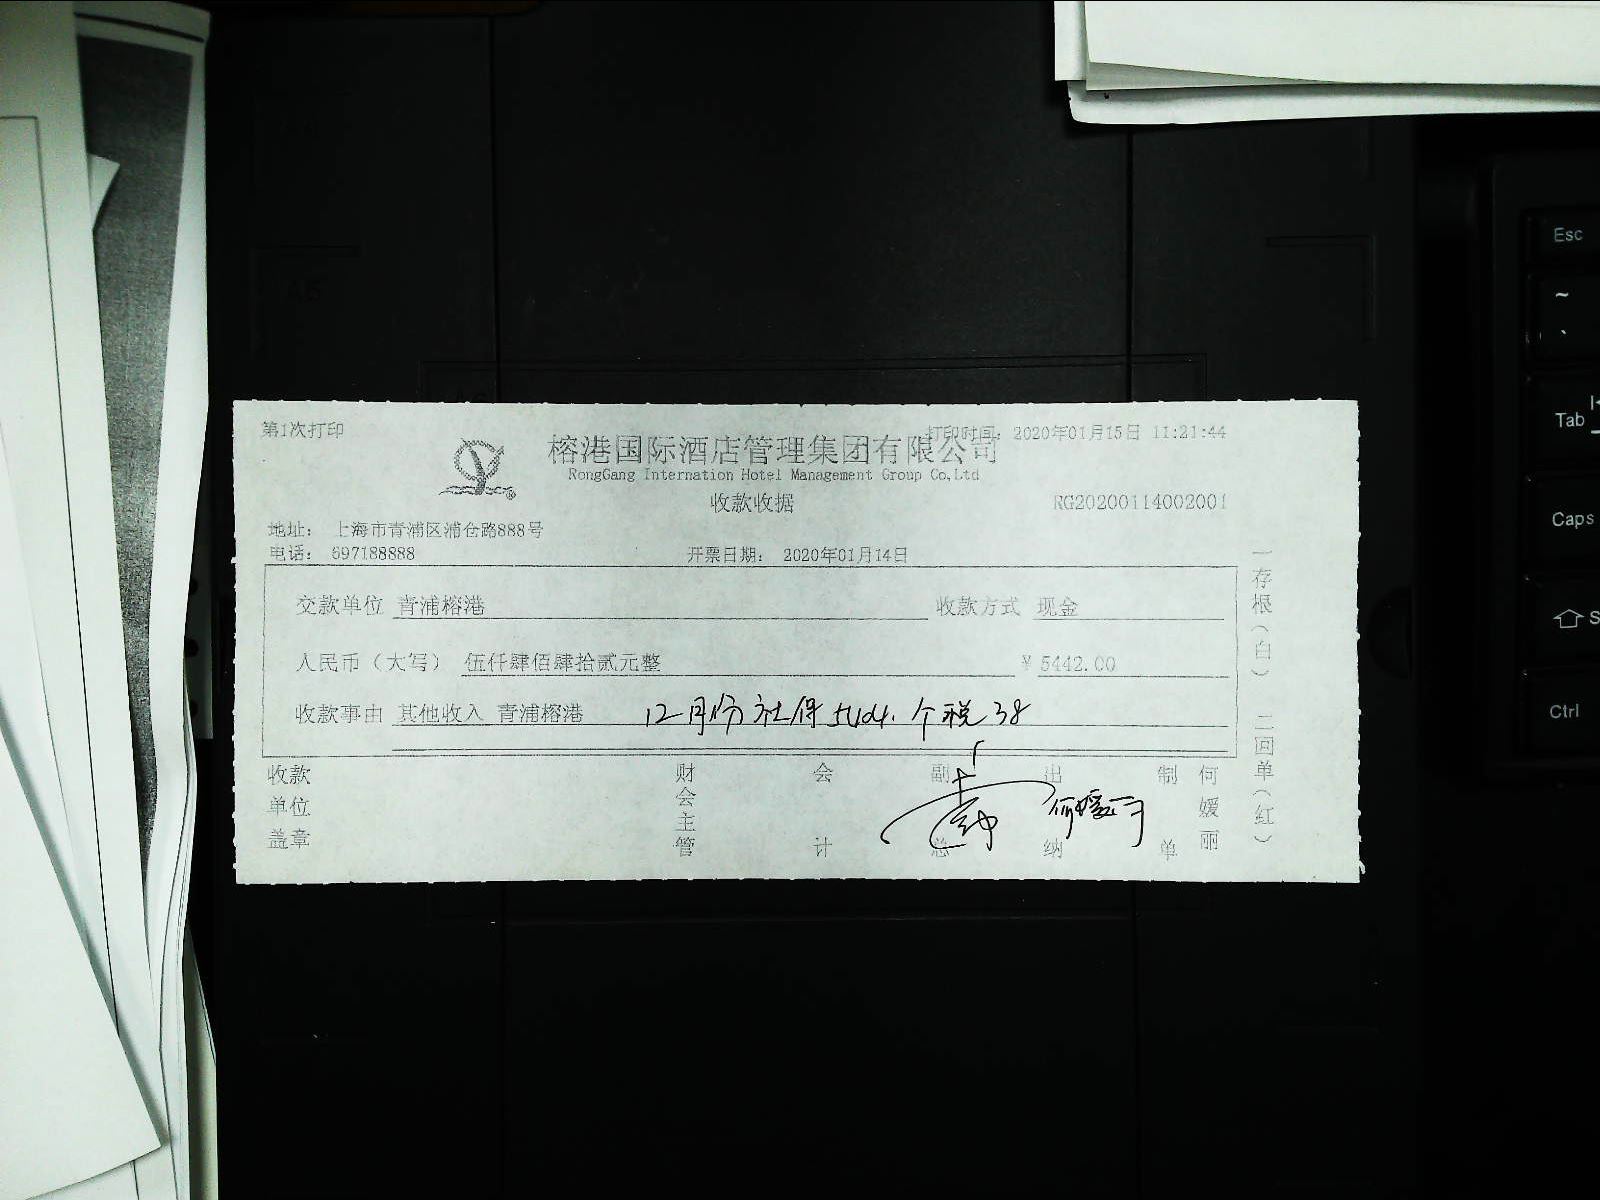 第1次打印
打印时间: 2020年01月15日 11:21:44
榕港国际酒店管理集团有限公司
RongGang Internation Hotel Management Group Co,Ltd
收款收据
RG20200114002001
地址: 上海市青浦区浦仓路888号
电话: 697188888
开票日期: 2020年01月14日
交款单位 青浦榕港 收款方式 现金
人民币（大写） 伍仟肆佰肆拾贰元整 ¥ 5442.00
收款事由 其他收入 青浦榕港 12月份社保5404. 个税38
收款单位盖章
财会主管
会计
副总
出纳 何媛丽
制单 何媛丽
一存根（白） 二回单（红）
Esc
~
`
Tab
Caps
Ctrl
A5